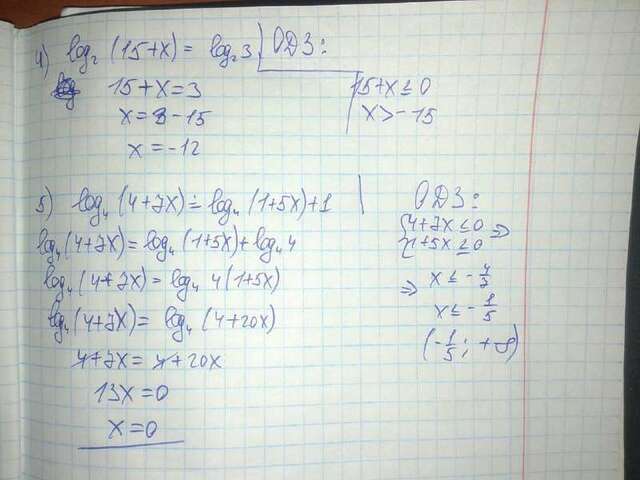 4) log₂ (15+x) = log₂ 3 | ОДЗ:
15+x = 3
x = 3 - 15
x = -12
15+x ≤ 0
x > -15
5) log₄ (4+7x) = log₄ (1+5x)+1
log₄ (4+7x) = log₄ (1+5x) + log₄ 4
log₄ (4+7x) = log₄ 4(1+5x)
log₄ (4+7x) = log₄ (4+20x)
4+7x = 4+20x
13x = 0
x = 0
ОДЗ:
{4+7x ≤ 0 ⇒
{1+5x ≤ 0
⇒ x ≤ -4/7
x ≤ -1/5
(-1/5; +∞)